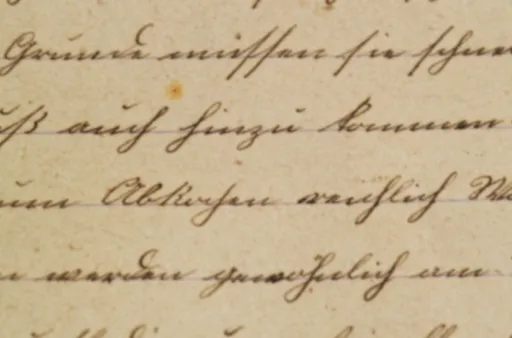 Grunde müssen sie schne
uß auch hinzu kommen
um Abkochen reichlich Wa
n werden gewöhnlich am